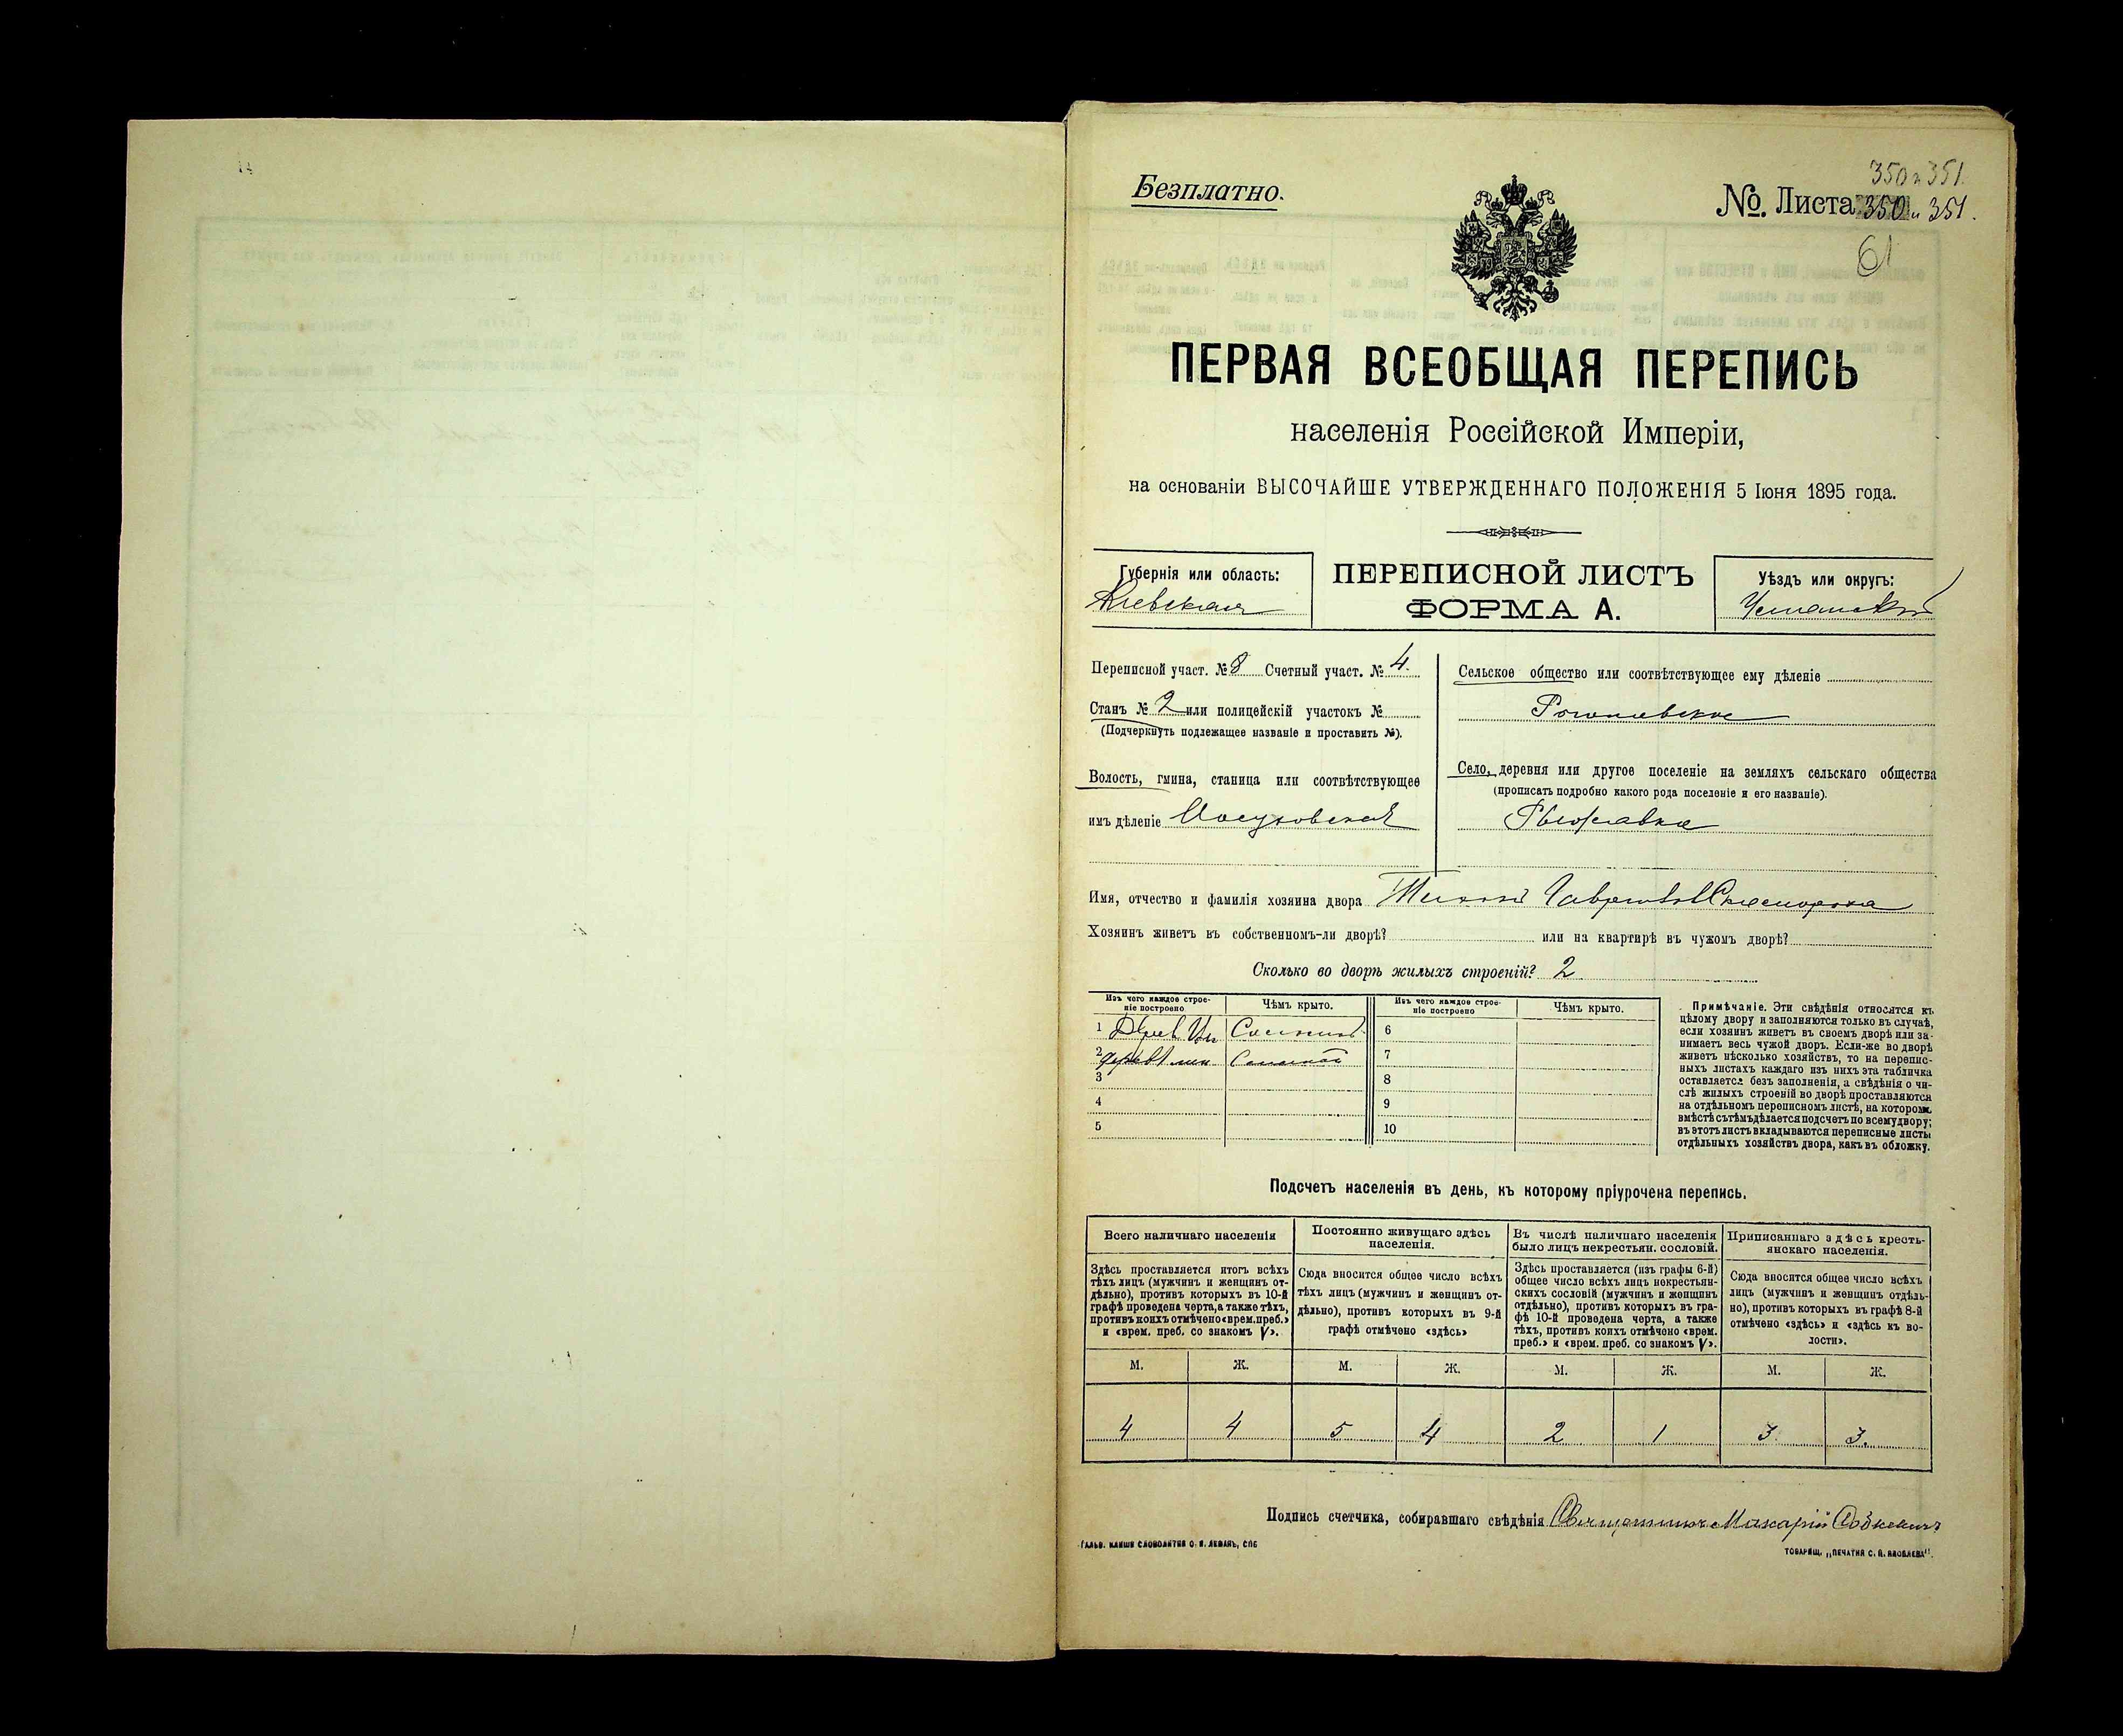 Безплатно.
350 и 351.
№. Листа 350 и 351.
61
ПЕРВАЯ ВСЕОБЩАЯ ПЕРЕПИСЬ
населенія Россійской Имперіи,
на основаніи ВЫСОЧАЙШЕ УТВЕРЖДЕННАГО ПОЛОЖЕНІЯ 5 Іюня 1895 года.
Губернія или область:
Кіевская
ПЕРЕПИСНОЙ ЛИСТЪ
ФОРМА А.
Уѣздъ или округъ:
Уманскій
Переписной участ. № 8 Счетный участ. № 4.
Станъ № 2 или полицейскій участокъ №
(Подчеркнуть подлежащее названіе и проставить №).
Волость, гмина, станица или соотвѣтствующее
имъ дѣленіе
Сельское общество или соотвѣтствующее ему дѣленіе
Село, деревня или другое поселеніе на земляхъ сельскаго общества
(прописать подробно какого рода поселеніе и его названіе).
Имя, отчество и фамилія хозяина двора
Хозяинъ живетъ въ собственномъ-ли дворѣ? или на квартирѣ въ чужомъ дворѣ?
Сколько во дворѣ жилыхъ строеній? 2
Изъ чего каждое строеніе построено
Чѣмъ крыто.
Изъ чего каждое строеніе построено
Чѣмъ крыто.
1
2
3
4
5
6
7
8
9
10
Примѣчаніе. Эти свѣдѣнія относятся къ
цѣлому двору и заполняются только въ случаѣ,
если хозяинъ живетъ въ своемъ дворѣ или за-
нимаетъ весь чужой дворъ. Если-же во дворѣ
живетъ нѣсколько хозяйствъ, то на перепис-
ныхъ листахъ каждаго изъ нихъ эта табличка
оставляется безъ заполненія, а свѣдѣнія о чи-
слѣ жилыхъ строеній во дворѣ проставляются
на отдѣльномъ переписномъ листѣ, на которомъ
вмѣстѣ съ тѣмъ дѣлается подсчетъ по всему двору;
въ этотъ листъ вкладываются переписные листы
отдѣльныхъ хозяйствъ двора, какъ въ обложку.
Подсчетъ населенія въ день, къ которому пріурочена перепись.
Всего наличнаго населенія
Здѣсь проставляется итогъ всѣхъ
тѣхъ лицъ (мужчинъ и женщинъ от-
дѣльно), противъ которыхъ въ 10-й
графѣ проведена черта, а также тѣхъ,
противъ коихъ отмѣчено «врем. преб.»
и «врем. преб. со знакомъ V».
Постоянно живущаго здѣсь
населенія.
Сюда вносится общее число всѣхъ
тѣхъ лицъ (мужчинъ и женщинъ от-
дѣльно), противъ которыхъ въ 9-й
графѣ отмѣчено «здѣсь»
Въ числѣ наличнаго населенія
было лицъ некрестьян. сословій.
Здѣсь проставляется (изъ графы 6-й)
общее число всѣхъ лицъ некрестьян-
скихъ сословій (мужчинъ и женщинъ
отдѣльно), противъ которыхъ въ гра-
фѣ 10-й проведена черта, а также
тѣхъ, противъ коихъ отмѣчено «врем.
преб.» и «врем. преб. со знакомъ V».
Приписаннаго здѣсь кресть-
янскаго населенія.
Сюда вносится общее число всѣхъ
лицъ (мужчинъ и женщинъ отдѣль-
но), противъ которыхъ въ графѣ 8-й
отмѣчено «здѣсь» и «здѣсь къ во-
лости».
М. Ж. М. Ж. М. Ж. М. Ж.
4 4 5 4 2 1 3 3.
Подпись счетчика, собиравшаго свѣдѣнія Священникъ Макарій
ГАЛЬВ. КЛИШЕ СЛОВОЛИТНИ О. И. ЛЕМАНЪ, СПБ
ТОВАРИЩ. „ПЕЧАТНЯ С. П. ЯКОВЛЕВА".